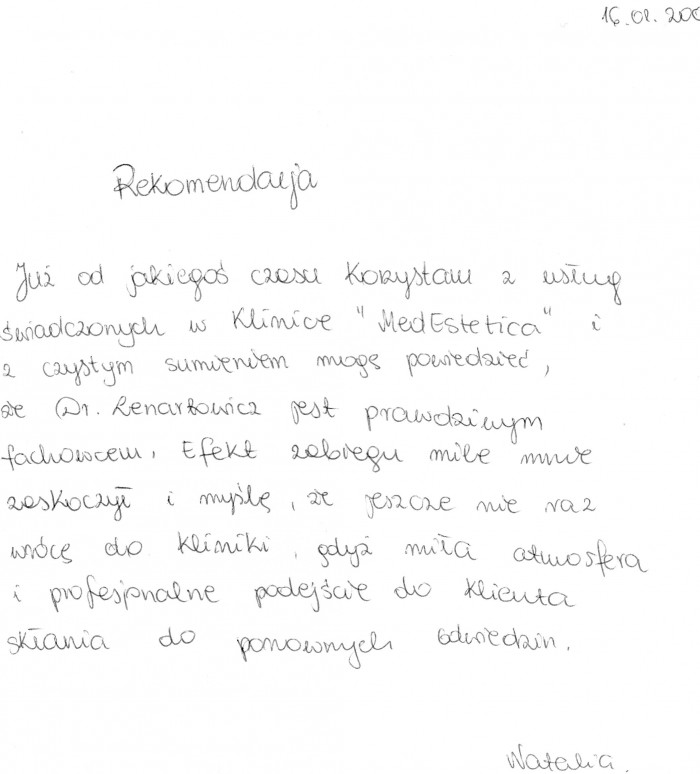 16.01.200
Rekomendacja
Już od jakiegoś czasu korzystam z usług
świadczonych w Klinice "MedEstetica" i
z czystym sumieniem mogę powiedzieć,
że Dr. Lenartowicz jest prawdziwym
fachowcem. Efekt zabiegu mile mnie
zaskoczył i myślę, że jeszcze nie raz
wrócę do kliniki, gdyż miła atmosfera
i profesjonalne podejście do klienta
skłania do ponownych odwiedzin.
Natalia.